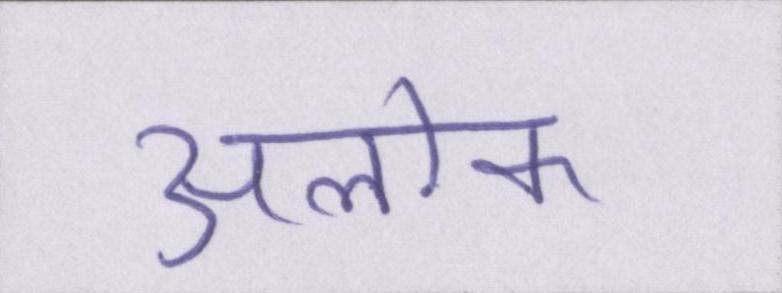 अलोक